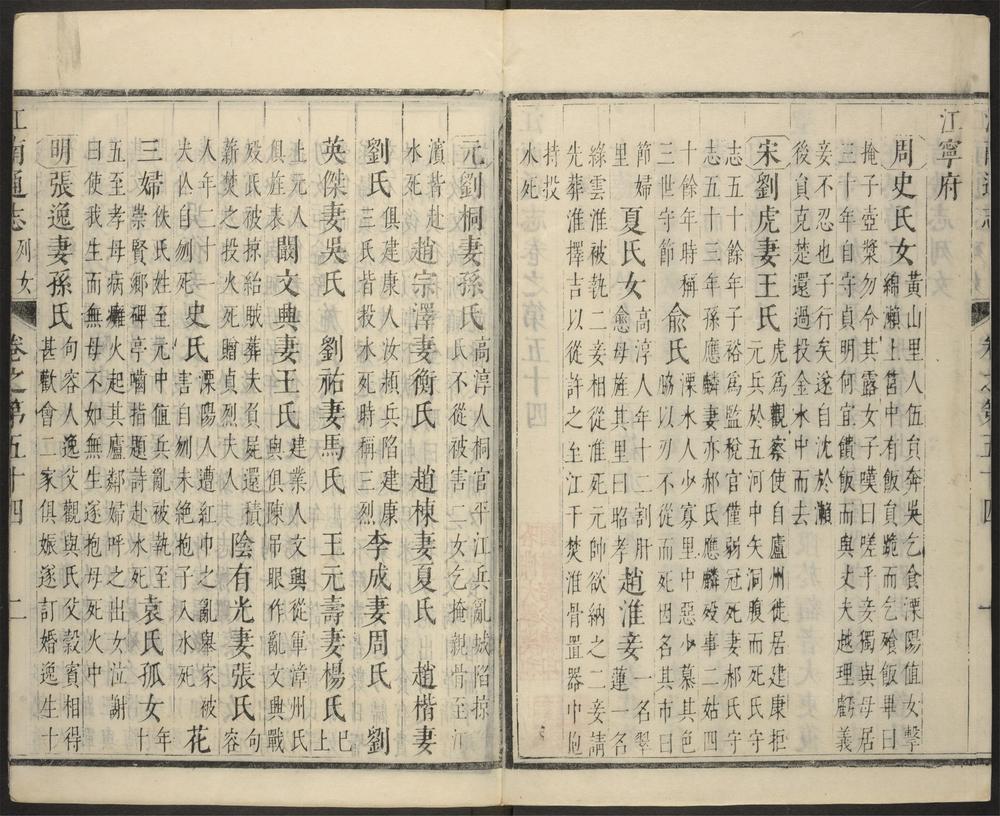 江寧府
周 史氏女 黃山里人伍員奔吳乞食溧陽值女擊
綿瀨上筥中有飯員跪而乞飱飯畢曰
掩子壺漿勿令其露女子嘆曰嗟乎妾獨與母居
三十年自守貞明何宜饋飯而與丈夫越理虧義
妾不忍也子行矣遂自沈於瀨
後員克楚還過投金水中而去
宋劉虎妻王氏 虎為觀察使自廬州徙居建康拒
元兵於五河中矢洞腹而死王氏守
志五十餘年子裕為監稅官僅弱冠死妻郝氏守
志五十三年孫應麟妻亦郝氏應麟歿事二姑四
十餘年時稱
三世守節 俞氏 溧水人少寡里中惡少慕其色
脇以刃不從而死因名其市
節婦
里 夏氏女 高淳人年十二割肝
愈母旌其里曰昭孝 趙淮妾 一名翠
蓮一名
綠雲淮被執二妾相從淮死元帥欲納之二妾請
先葬淮擇吉以從許之至江干焚淮骨置器中抱
持投
水死
元劉桐妻孫氏 高淳人桐官平江兵亂城陷掠
氏不從被害二女乞掩親骨至江
濱皆赴
水死 趙宗澤妻衡氏 趙棟妻夏氏 趙楷妻
劉氏 俱建康人汝潁兵陷建康
三氏皆投水死時稱三烈 李成妻周氏 劉
英傑妻吳氏 劉祐妻馬氏 王元壽妻楊氏 已
上
上元人
俱旌表 闞文興妻王氏 建業人文興從軍漳州氏
與俱陳吊眼作亂文興戰
歿氏被掠紿賊葬夫負屍還積
薪焚之投火死贈貞烈夫人 陰有光妻張氏 句
容
人年二十
夫亾自刎死 史氏 溧陽人遭紅巾之亂舉家被
害自刎未絕抱子入水死 花
三婦 佚氏姓至元中值兵亂被執至
崇賢鄉碑亭中嚙指題詩赴水死 袁氏孤女 年
十
五至孝母病癱火起其廬鄰婦呼之出女泣謝
曰使我生而無母不如無生遂抱母死火中
明張逸妻孫氏 句容人逸父觀與氏父穀賓相得
甚歡會二家俱娠遂訂婚逸生十
江南通志 列女 卷之第五十四 二